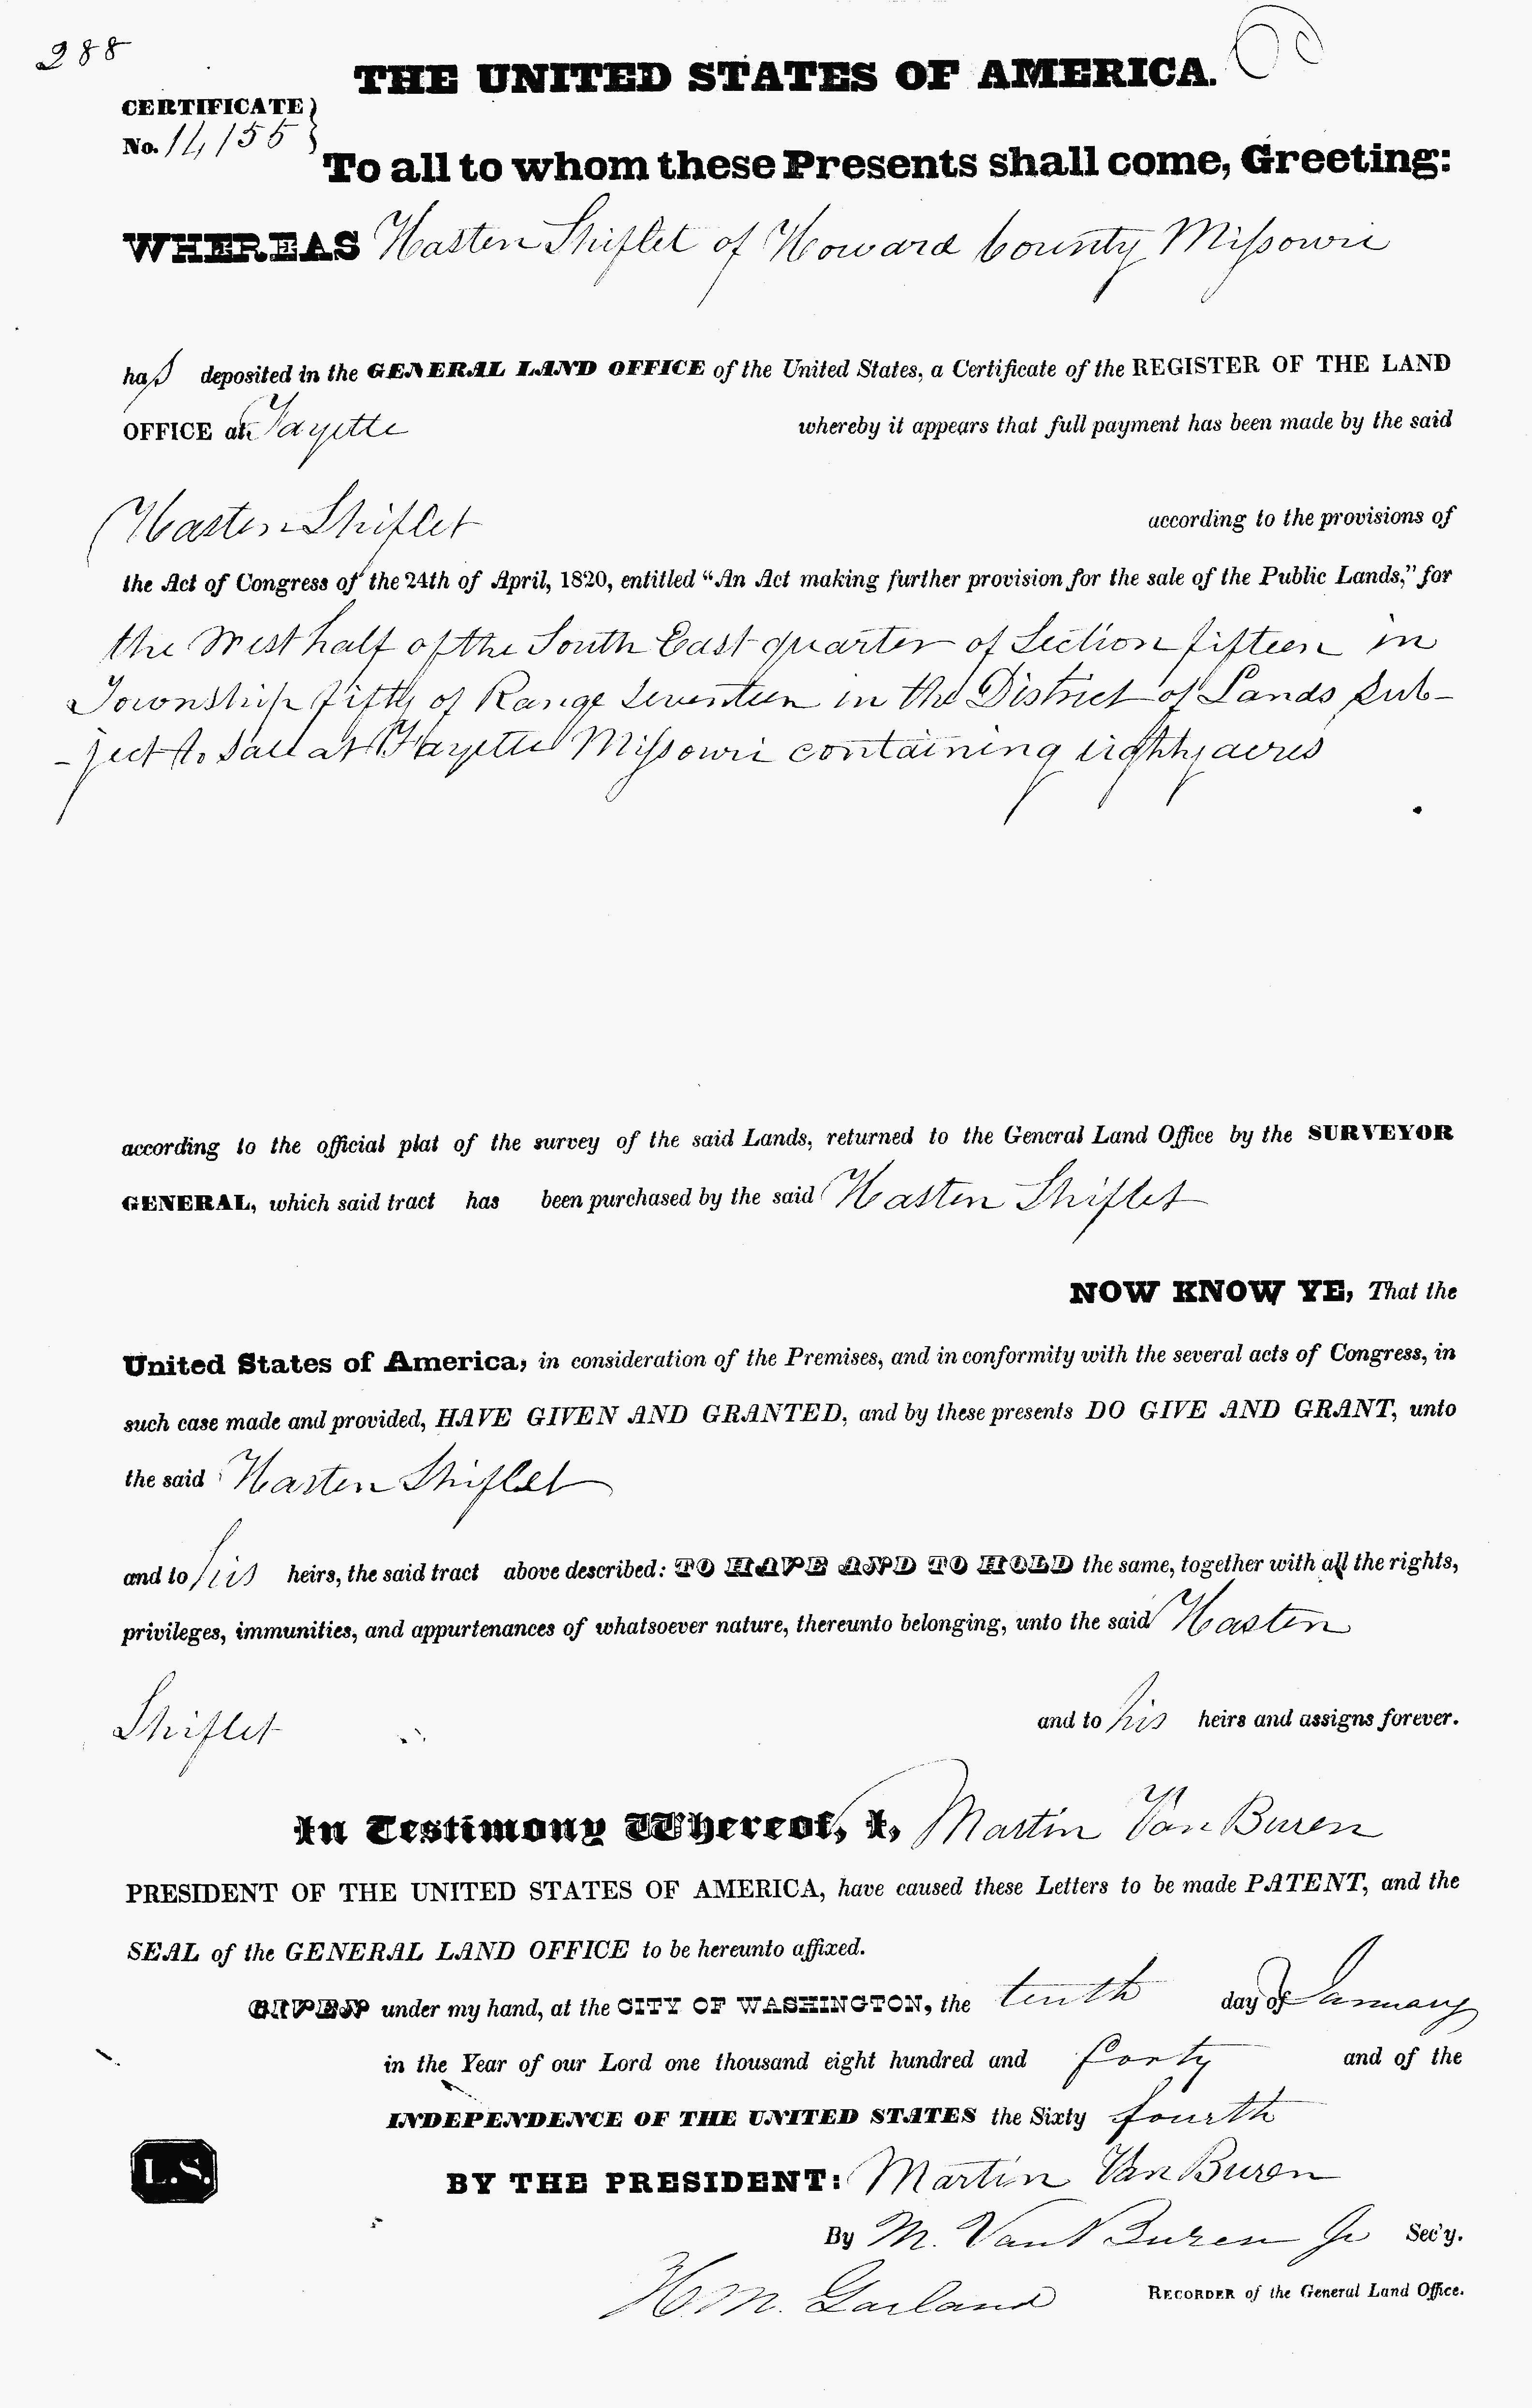 288
THE UNITED STATES OF AMERICA.
CERTIFICATE
No. 14,155
To all to whom these Presents shall come, Greeting:
WHEREAS Hasten Shiflet of Howard County Missouri
has deposited in the GENERAL LAND OFFICE of the United States, a Certificate of the REGISTER OF THE LAND
OFFICE at Fayette whereby it appears that full payment has been made by the said
Hasten Shiflet according to the provisions of
the Act of Congress of the 24th of April, 1820, entitled “An Act making further provision for the sale of the Public Lands,” for
the West half of the South East quarter of Section fifteen in
Township fifty of Range Seventeen in the District of Lands Sub-
-ject to Sale at Fayette Missouri containing eighty acres
according to the official plat of the survey of the said Lands, returned to the General Land Office by the SURVEYOR
GENERAL, which said tract has been purchased by the said Hasten Shiflet
NOW KNOW YE, That the
United States of America, in consideration of the Premises, and in conformity with the several acts of Congress, in
such case made and provided, HAVE GIVEN AND GRANTED, and by these presents DO GIVE AND GRANT, unto
the said Hasten Shiflet
and to his heirs, the said tract above described: TO HAVE AND TO HOLD the same, together with all the rights,
privileges, immunities, and appurtenances of whatsoever nature, thereunto belonging, unto the said Hasten
Shiflet and to his heirs and assigns forever.
In Testimony Whereof, I, Martin Van Buren
PRESIDENT OF THE UNITED STATES OF AMERICA, have caused these Letters to be made PATENT, and the
SEAL of the GENERAL LAND OFFICE to be hereunto affixed.
GIVEN under my hand, at the CITY OF WASHINGTON, the tenth day of January
in the Year of our Lord one thousand eight hundred and forty and of the
INDEPENDENCE OF THE UNITED STATES the Sixty fourth
L.S.
BY THE PRESIDENT: Martin Van Buren
By M. Van Buren Jr Sec'y.
H. M. Garland RECORDER of the General Land Office.